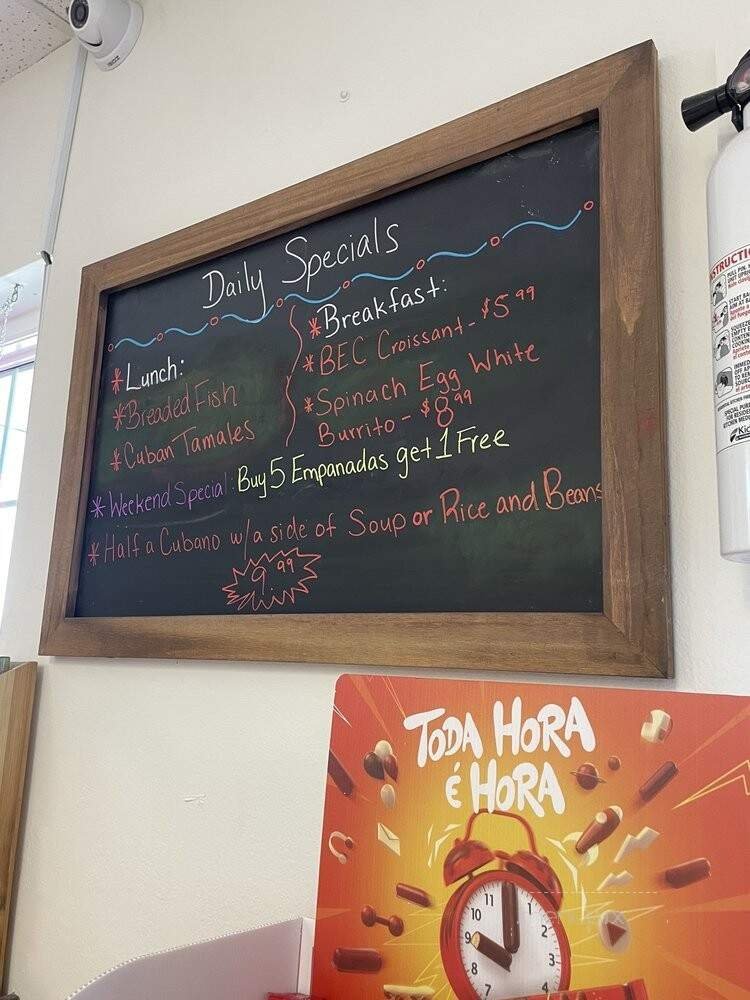 Daily Specials
*Lunch:
*Breaded Fish
*Cuban Tamales
*Breakfast:
*BEC Croissant - $5.99
*Spinach Egg White
Burrito - $8.99
*Weekend Special: Buy 5 Empanadas get 1 Free
*Half a Cubano w/a side of Soup or Rice and Beans
9.99
TODA HORA
É HORA
11
1
10
2
9
3
8
4
7